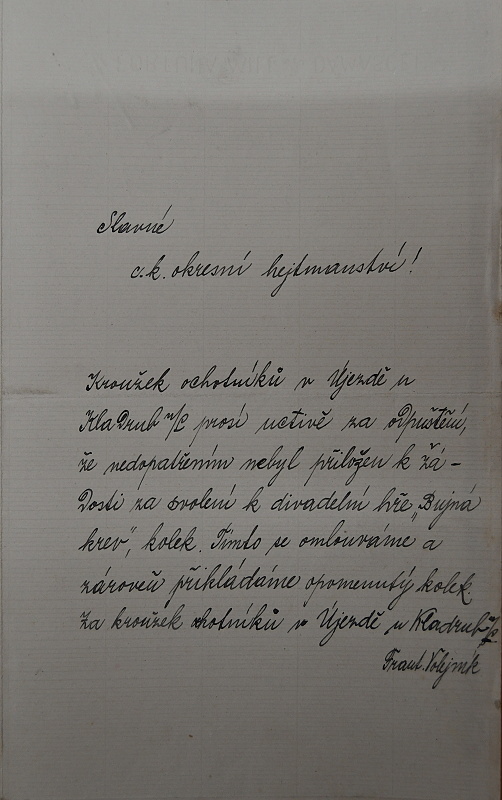 Slavné
c. k. okresní hejtmanství!
Kroužek ochotníků v Újezdě u
Kladrub n/L prosí uctivě za odpuštění,
že nedopatřením nebyl přiložen k žá-
dosti za svolení k divadelní hře „Bujná
krev“, kolek. Tímto se omlouváme a
zároveň přikládáme opomenutý kolek.
Za kroužek ochotníků v Újezdě u Kladrub n/L
Frant. Volejník